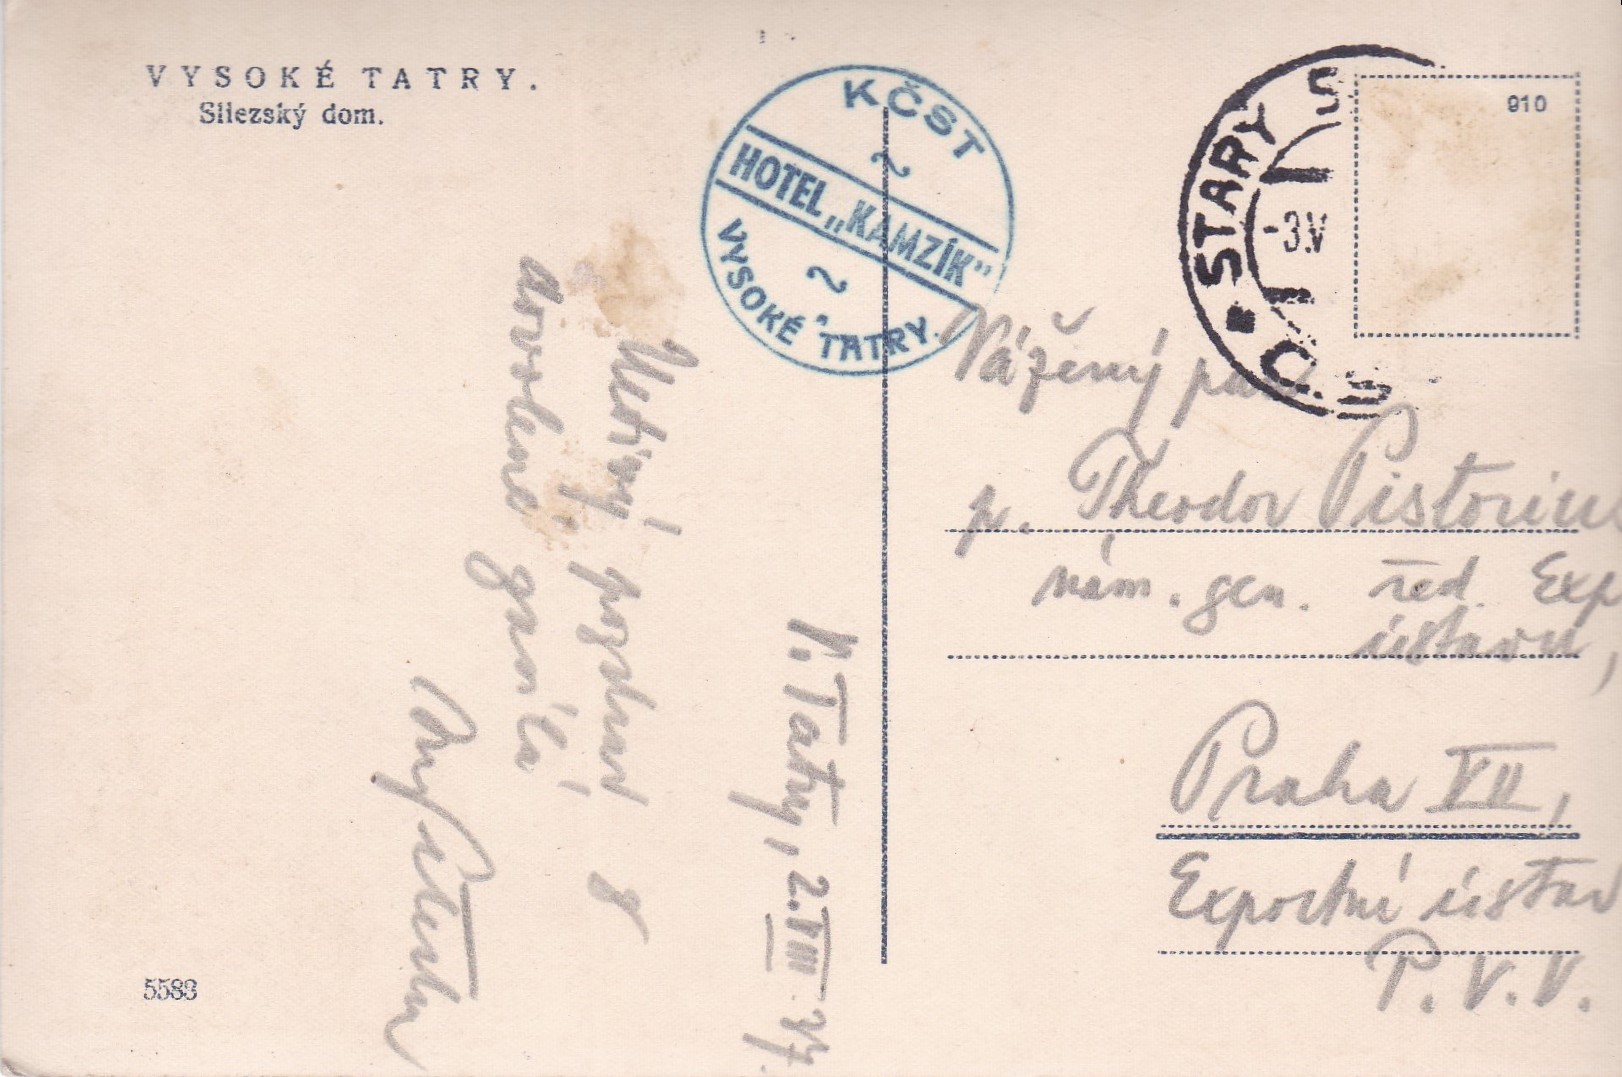 VYSOKÉ TATRY.
Sliezský dom.
KČST
HOTEL „KAMZÍK"
VYSOKÉ TATRY.
STARY S
-3.V
910
Vážený pan
p. Theodor Pistoriu
nám. gen. řed. Exp
ústavu,
Praha VII,
Exportní ústav
P.V.V.
V. Tatry, 2.VIII. 37.
Uctivý pozdrav z
dovolené zasílá
5583